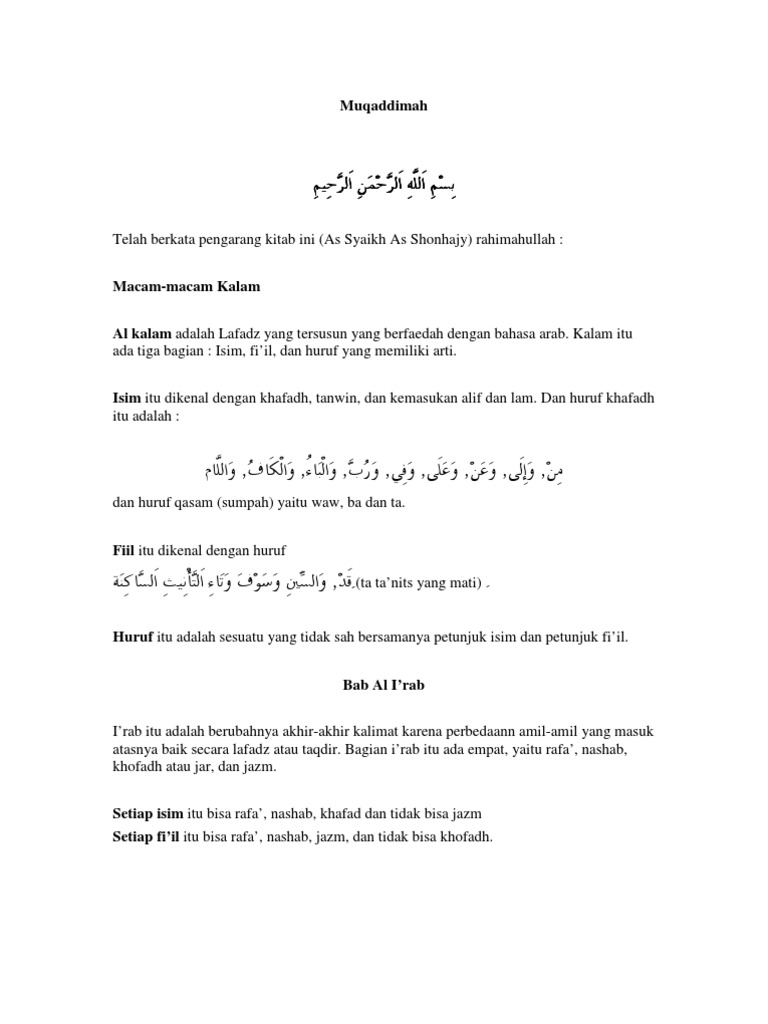 Muqaddimah
بِسْمِ اَللَّهِ اَلرَّحْمَنِ اَلرَّحِيمِ
Telah berkata pengarang kitab ini (As Syaikh As Shonhajy) rahimahullah :
Macam-macam Kalam
Al kalam adalah Lafadz yang tersusun yang berfaedah dengan bahasa arab. Kalam itu
ada tiga bagian : Isim, fi’il, dan huruf yang memiliki arti.
Isim itu dikenal dengan khafadh, tanwin, dan kemasukan alif dan lam. Dan huruf khafadh
itu adalah :
مِنْ, وَإِلَى, وَعَنْ, وَعَلَى, وَفِي, وَرُبَّ, وَالْبَاءُ, وَالْكَافُ, وَاللَّام
dan huruf qasam (sumpah) yaitu waw, ba dan ta.
Fiil itu dikenal dengan huruf
قَدْ, وَالسِّينِ وَسَوْفَ وَتَاءِ اَلتَّأْنِيثِ اَلسَّاكِنَة (ta ta’nits yang mati) .
Huruf itu adalah sesuatu yang tidak sah bersamanya petunjuk isim dan petunjuk fi’il.
Bab Al I’rab
I’rab itu adalah berubahnya akhir-akhir kalimat karena perbedaann amil-amil yang masuk
atasnya baik secara lafadz atau taqdir. Bagian i’rab itu ada empat, yaitu rafa’, nashab,
khofadh atau jar, dan jazm.
Setiap isim itu bisa rafa’, nashab, khafad dan tidak bisa jazm
Setiap fi’il itu bisa rafa’, nashab, jazm, dan tidak bisa khofadh.